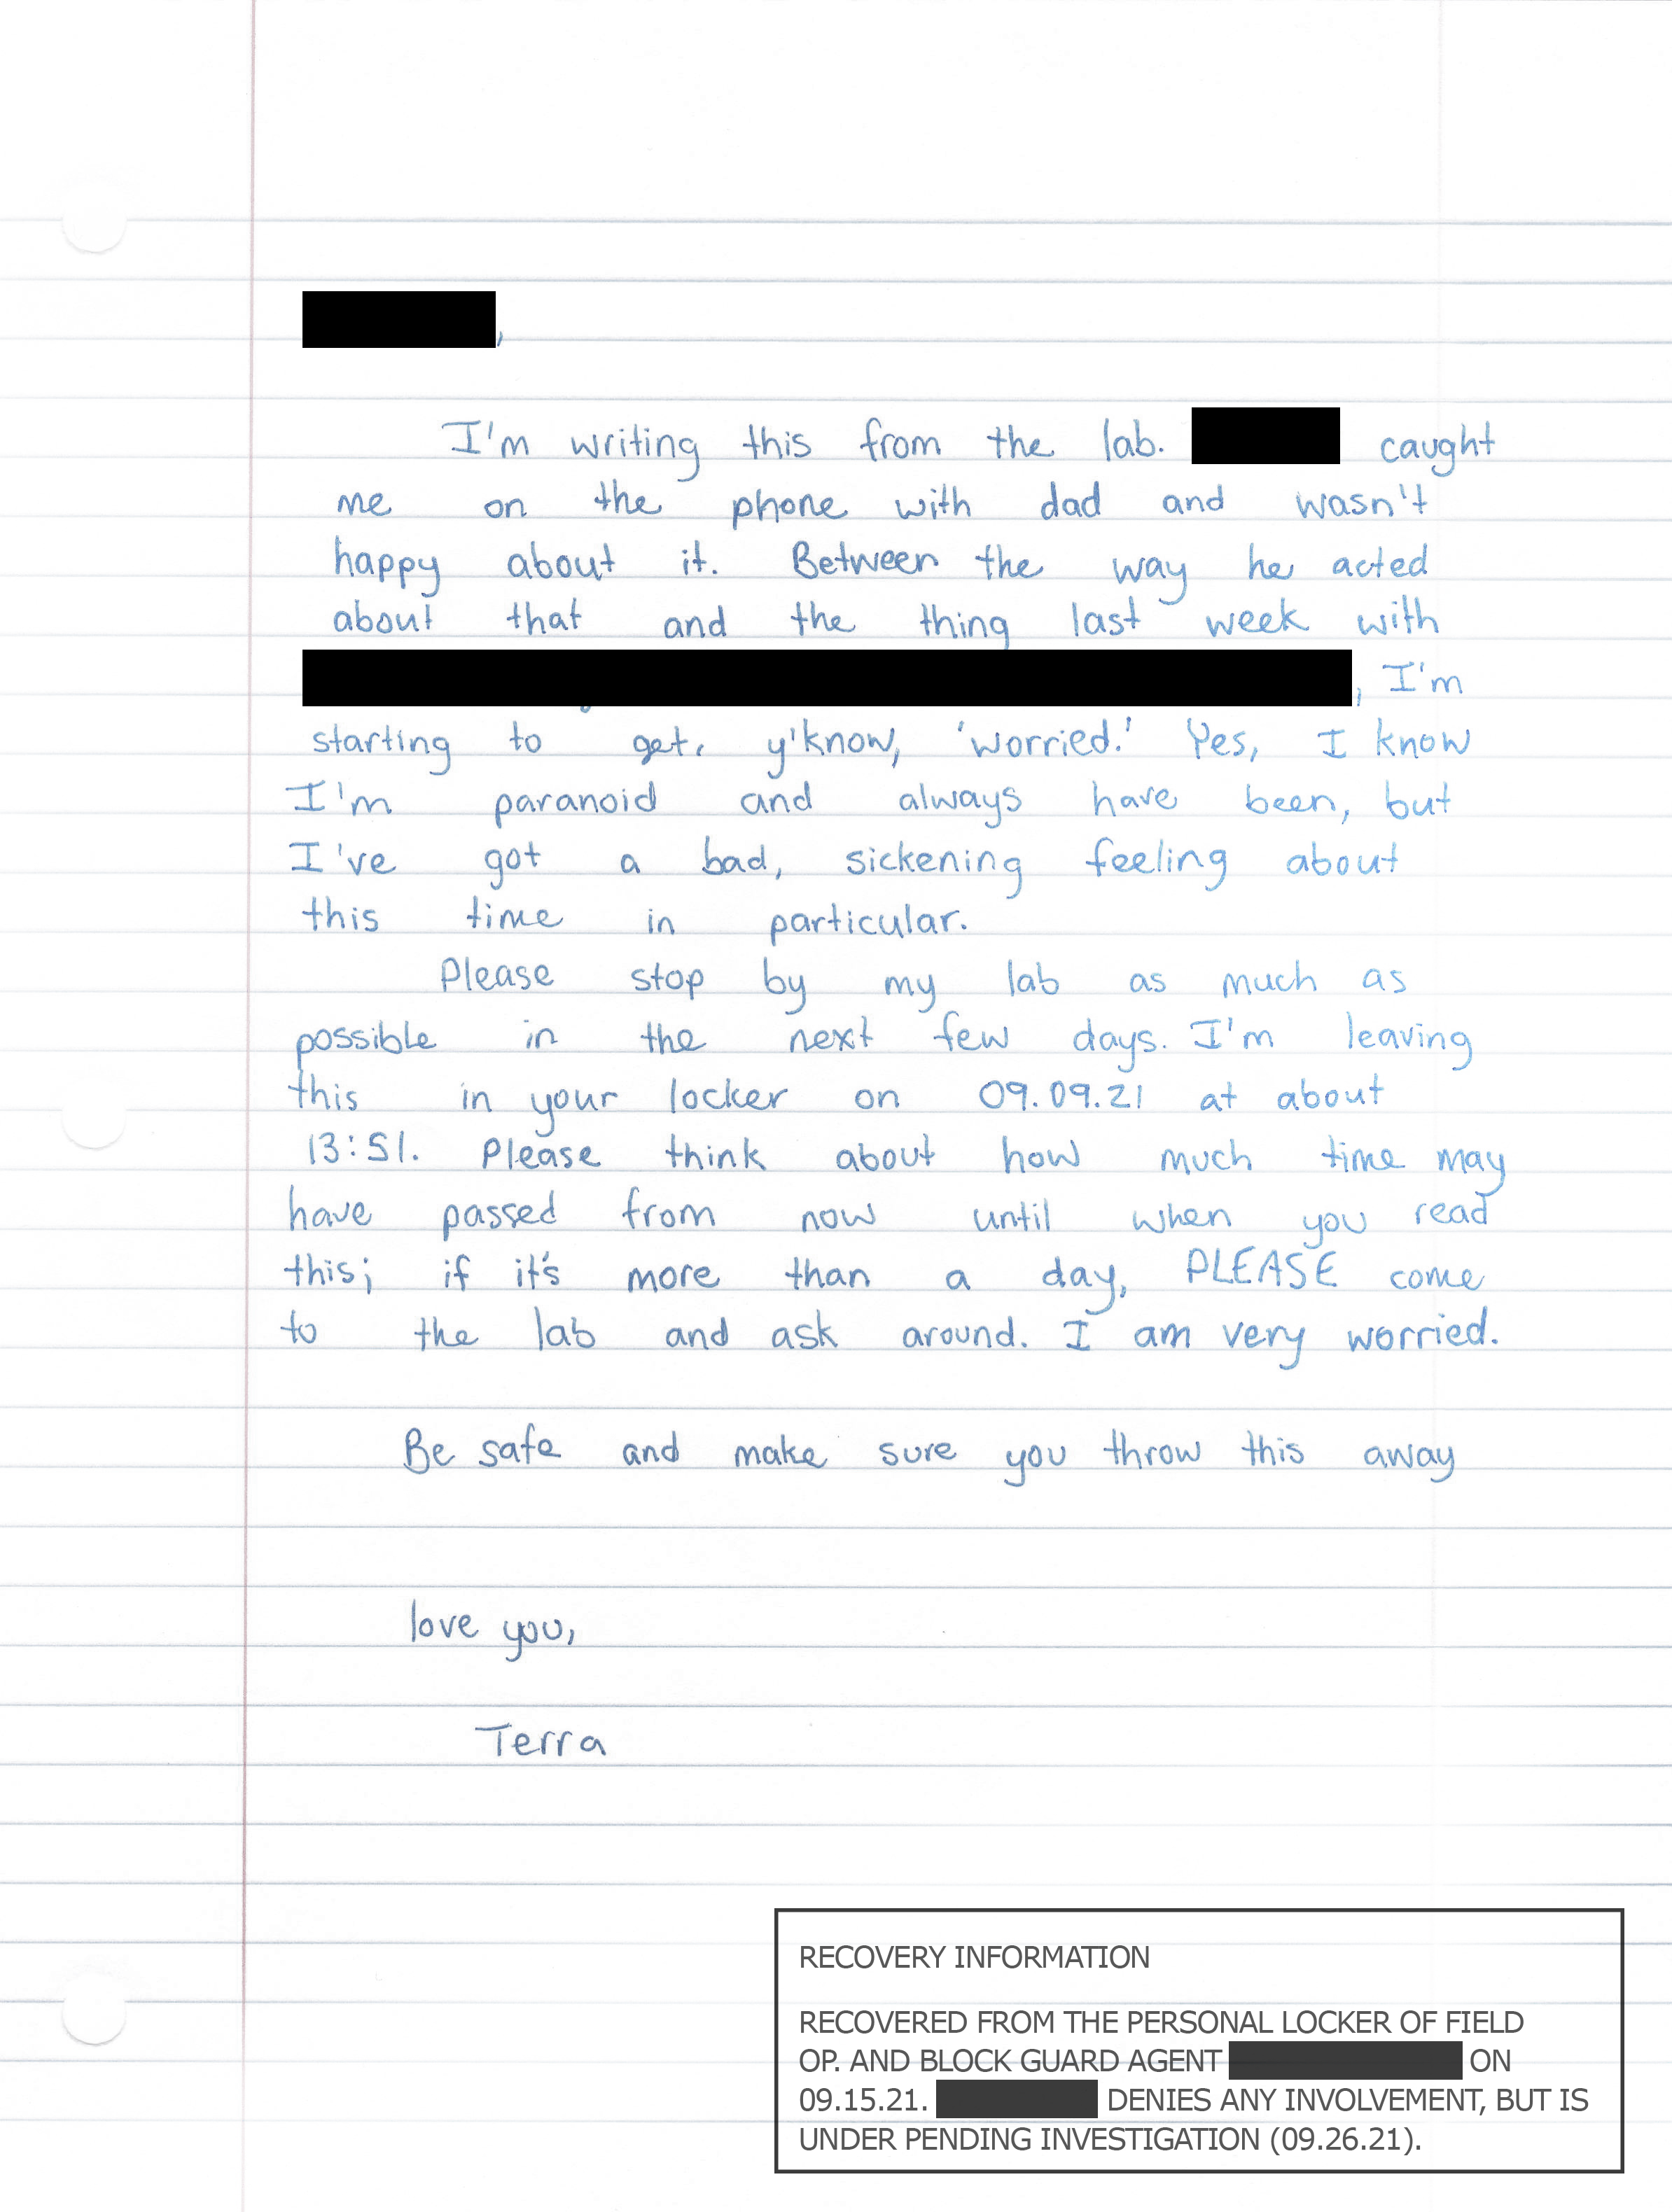 ,
I'm writing this from the lab. caught
me on the phone with dad and wasn't
happy about it. Between the way he acted
about that and the thing last week with
, I'm
starting to get, y'know, 'worried.' Yes, I know
I'm paranoid and always have been, but
I've got a bad, sickening feeling about
this time in particular.
Please stop by my lab as much as
possible in the next few days. I'm leaving
this in your locker on 09.09.21 at about
13:51. Please think about how much time may
have passed from now until when you read
this; if it's more than a day, PLEASE come
to the lab and ask around. I am very worried.
Be safe and make sure you throw this away
love you,
Terra
RECOVERY INFORMATION
RECOVERED FROM THE PERSONAL LOCKER OF FIELD
OP. AND BLOCK GUARD AGENT ON
09.15.21. DENIES ANY INVOLVEMENT, BUT IS
UNDER PENDING INVESTIGATION (09.26.21).